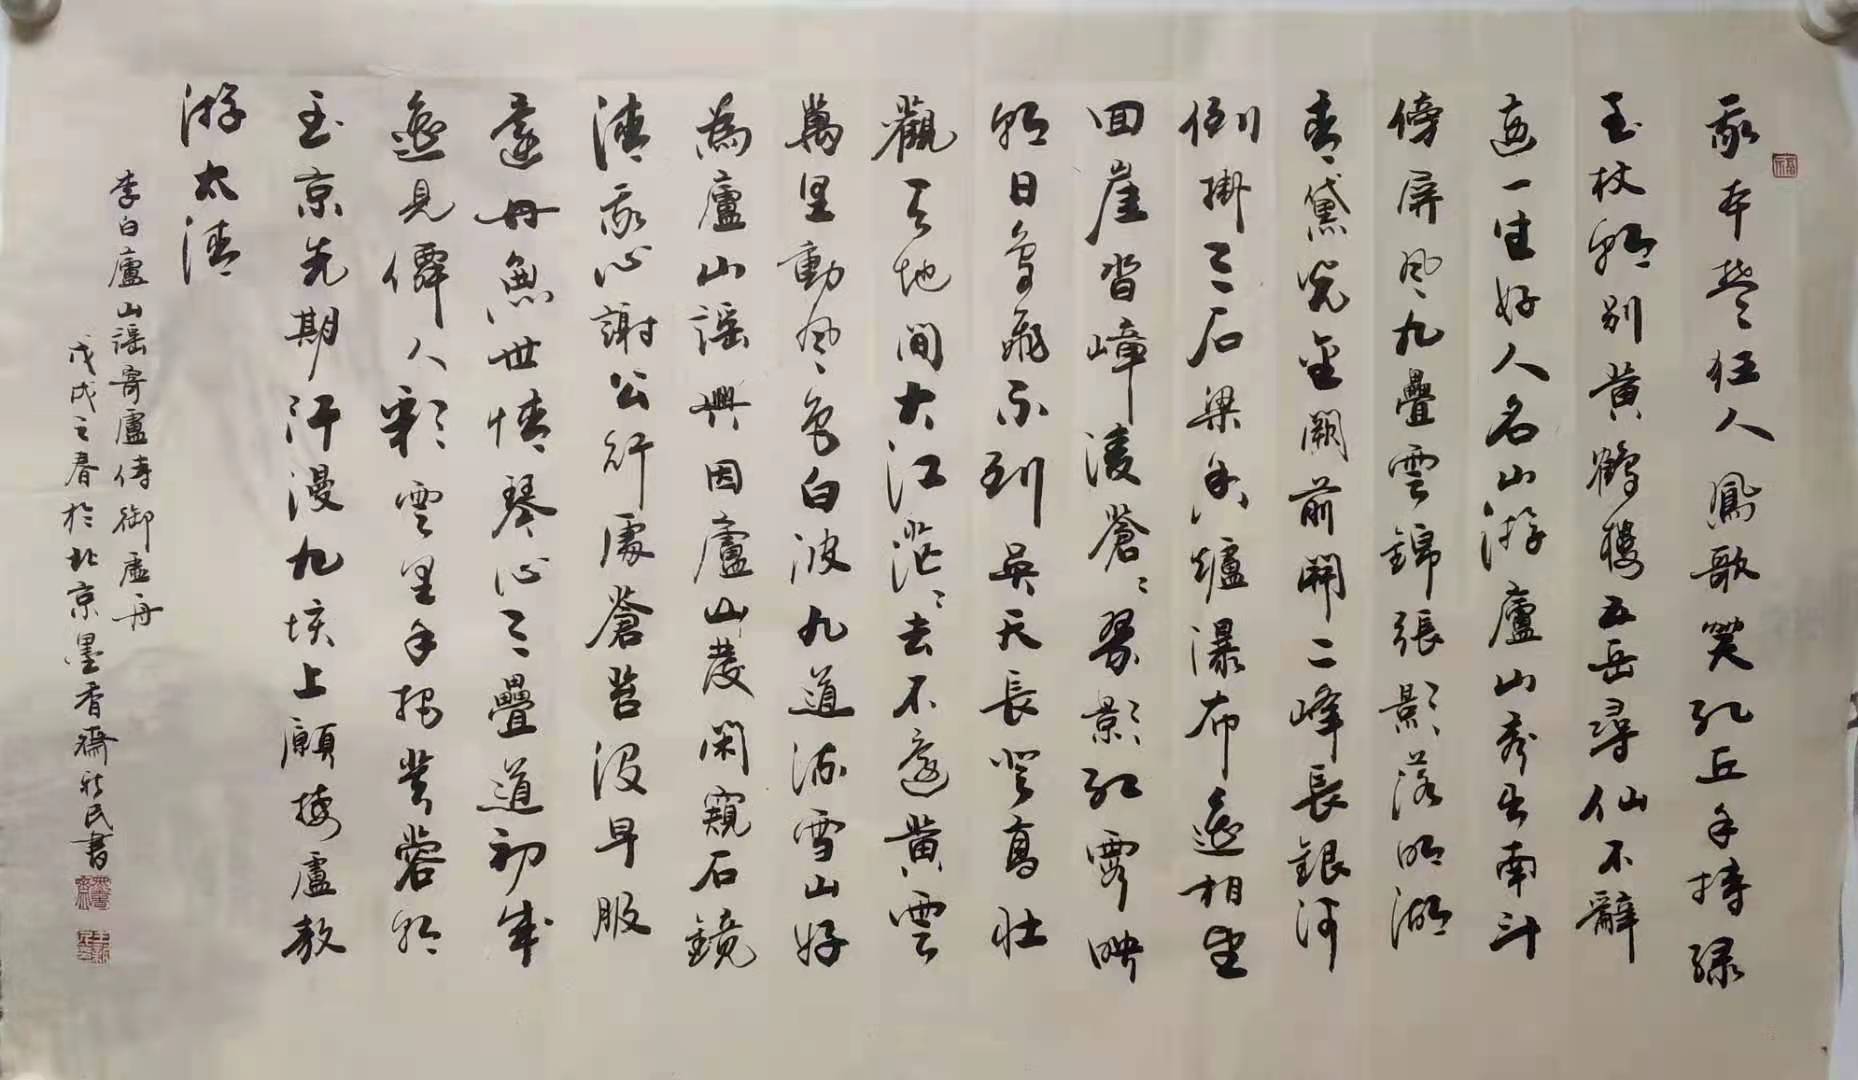 我本楚狂人鳳歌笑孔丘手持绿
玉杖朝别黄鶴樓五岳尋仙不辭
遠一生好人名山游廬山秀出南斗
傍屏风九疊雲錦張影落明湖
青黛光金闕前開二峰長銀河
倒掛三石梁香爐瀑布遥相望
回崖沓嶂凌蒼々翠影红霞映
朝日鸟飛不到吴天長登高壮
觀天地間大江茫々去不還黄雲
萬里動风色白波九道流雪山好
為廬山謡興因廬山發閑窺石鏡
清我心謝公行處蒼苔没早服
還丹無世情琴心三疊道初成
遥見僊人彩雲里手把芙蓉朝
玉京先期汗漫九垓上願接盧敖
游太清
李白廬山謡寄盧侍御虚舟
戊戌之春於北京墨香齋新民書